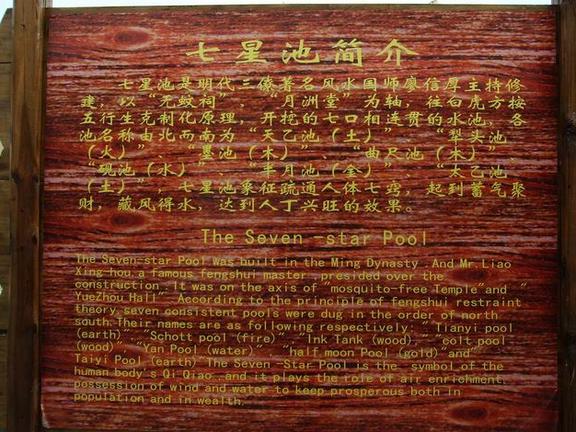 七星池简介
七星池是明代三僚著名风水国师廖信厚主持修
建，以“无蚊祠”、“月洲堂”为轴，往白虎方按
五行生克制化原理，开挖的七口相连贯的水池，各
池名称由北而南为“天乙池（土）”“犁头池
（火）”、“墨池（木）”、“曲尺池（木）”、
“砚池（水）”、“半月池（金）”、“太乙池
（土）”，七星池象征疏通人体七窍，起到蓄气聚
财，藏风得水，达到人丁兴旺的效果。
The Seven-star Pool
The Seven-star Pool was built in the Ming Dynasty .And Mr.Liao
Xing-hou,a famous fengshui master ,presided over the
construction .It was on the axis of "mosquito-free Temple"and "
YueZhou Hall". According to the principle of fengshui restraint
theory,seven consistent pools were dug in the order of north
south.Their names are as following respectively: " Tianyi pool
(earth)" "Schott pool (fire)" "Ink Tank (wood)," "colt pool
(wood)" "Yan Pool (water)" "half moon Pool (gold)"and"
Taiyi Pool (earth)"The Seven -Star Pool is the symbol of the
human body's Qi Qiao ,and it plays the role of air enrichment,
possession of wind and water to keep prosperous both in
population and in wealth.